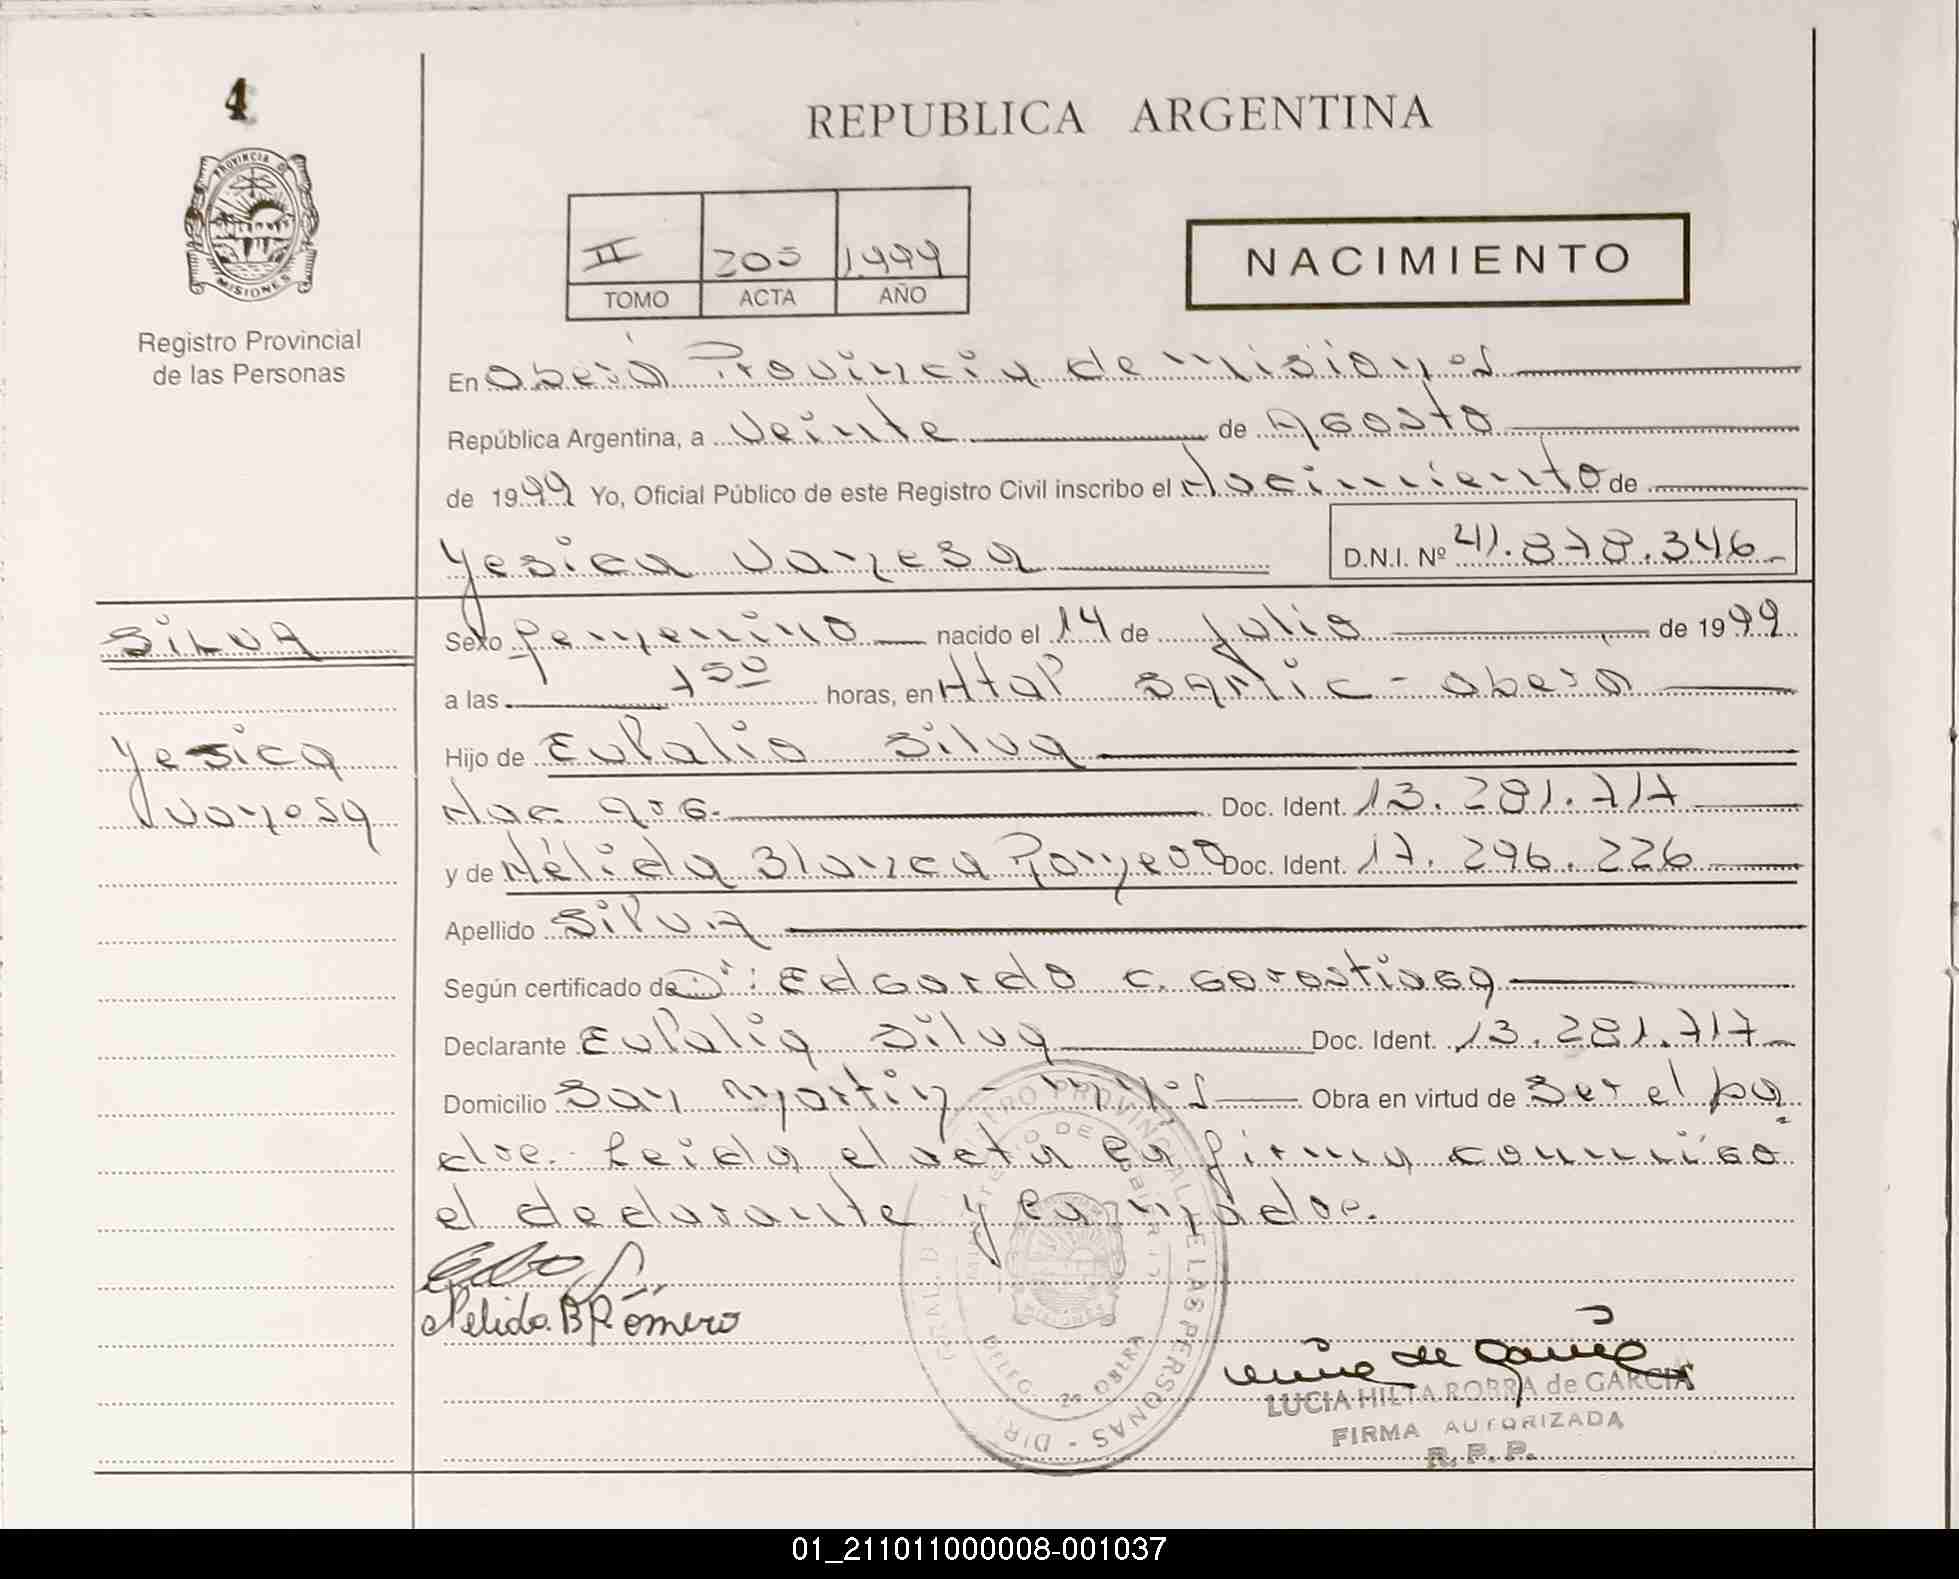 4
REPUBLICA ARGENTINA
PROVINCIA D
MISIONES
Registro Provincial
de las Personas
II 205 1.999
TOMO ACTA AÑO
NACIMIENTO
En Oberá Provincia de Misiones
República Argentina, a Veinte de Agosto
de 1999 Yo, Oficial Público de este Registro Civil inscribo el Nacimiento de
Yesica Vanesa D.N.I. Nº 41.878.346.-
SILVA
Yesica
Vanesa
Sexo femenino nacido el 14 de Julio de 1999
a las 1 50 horas, en Htal SAMIC - Oberá
Hijo de Eulalio Silva
Nac. Arg. Doc. Ident. 13.281.717
y de Nélida Blanca Romero Doc. Ident. 17.296.226
Apellido SilvA
Según certificado de Dr: Edgardo C. Gorostiaga
Declarante Eulalio Silva Doc. Ident. 13.281.717
Domicilio San Martín - Mnes Obra en virtud de Ser el pa
dre. Leida el acta la firma conmigo
el declarante y la madre.
Nelida B Romero
REGISTRO PROVINCIAL DE LAS PERSONAS - DIR. GRAL. D
DELEG. OBERA
LUCIA HILTA ROBRA de GARCIA
FIRMA AUTORIZADA
R. P. P.
01_211011000008-001037